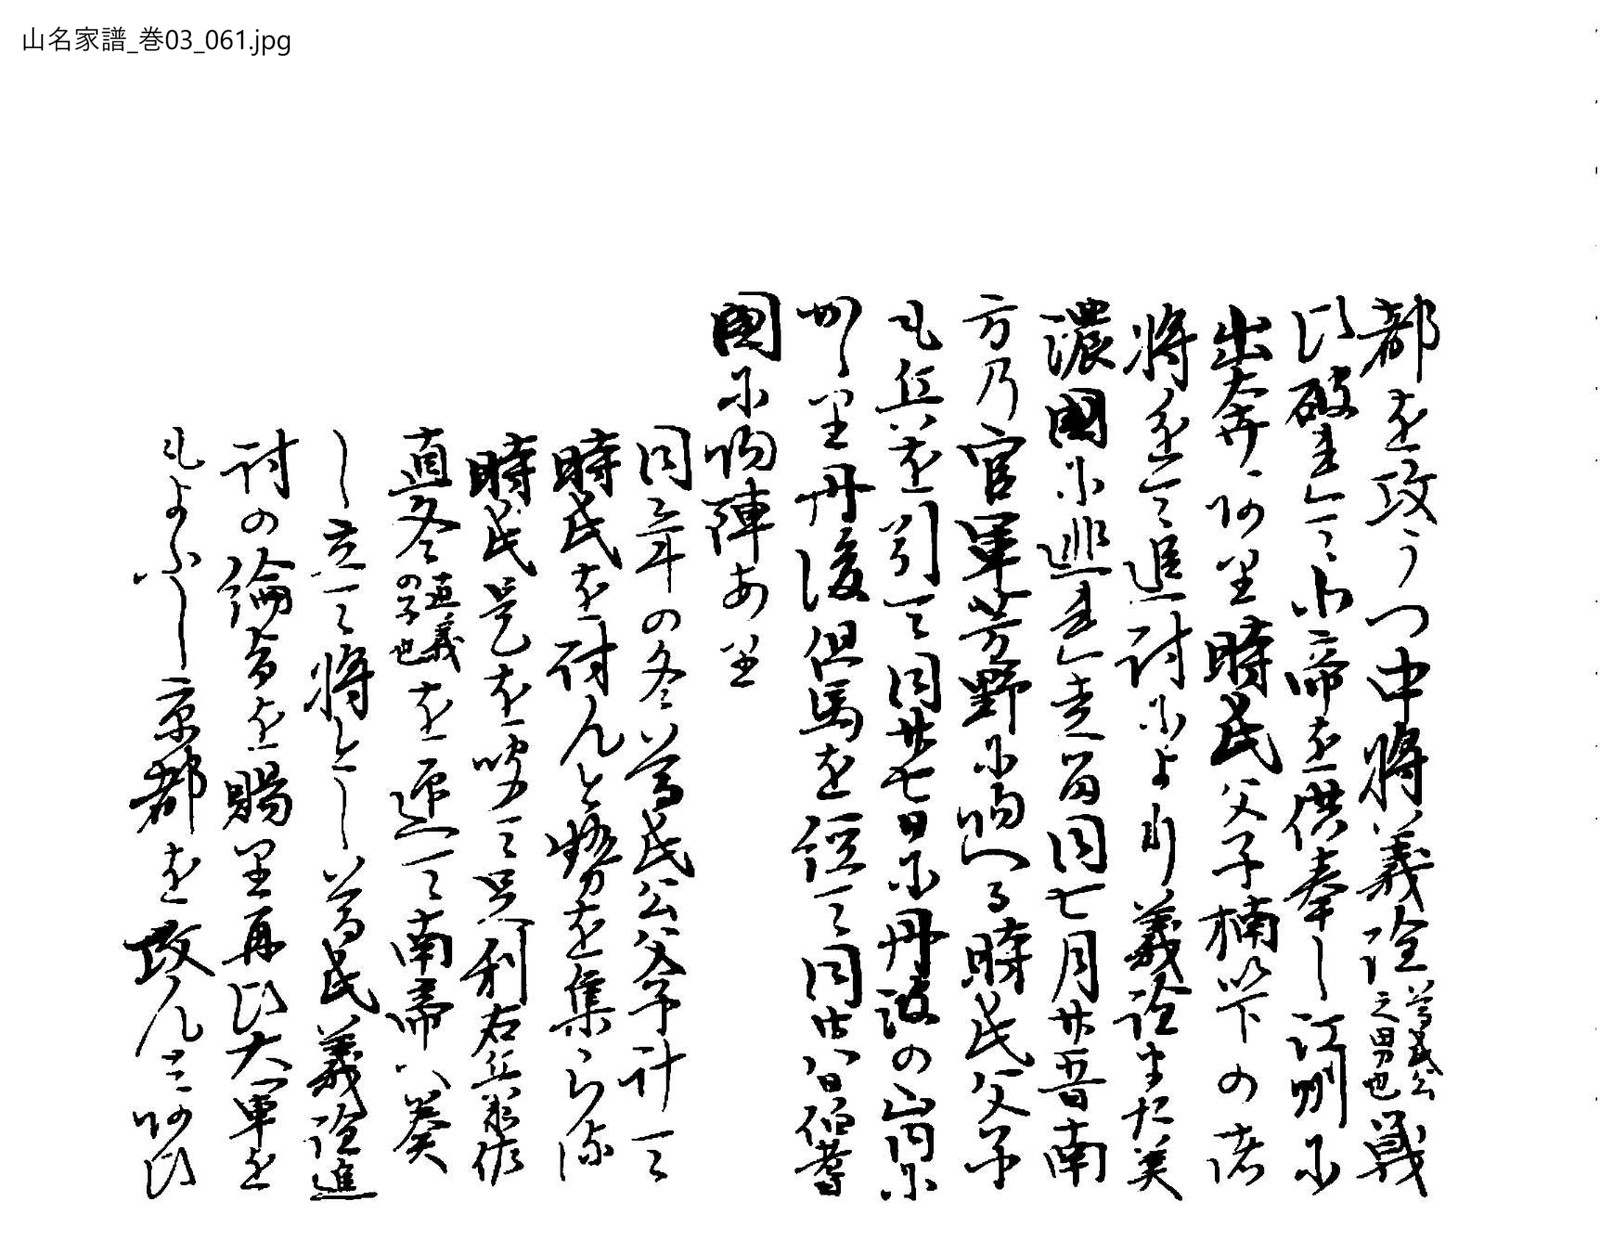 山名家譜_巻03_061.jpg
都を攻うつ中将義詮尊氏公之男也戦
ひ破れて北帝を供奉し江州に
出奔ありより時氏父子楠以下の諸
将を〆追討によりて義詮また美
濃国に逃れ走る同七月廿五日南
方乃官軍芳野に帰へる時氏父子
も兵を引て同廿七日に丹波の山内に
かゝり丹後但馬を経て同廿八日伯耆
国に帰陣あり
同年の冬尊氏公父子計て
時氏を討んと勢を集らる
時氏是を聞て足利右兵衛佐
直冬直義の子也を迎て南帝へ奏
し立て将とし尊氏義詮進
討の綸旨を賜り再ひ大軍を
もよふし京都を攻んとあひ